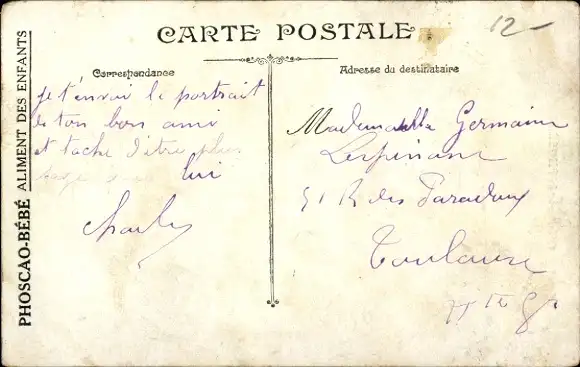 CARTE POSTALE
12-
PHOSCAO-BÉBÉ ALIMENT DES ENFANTS
Correspondance
je t'envoi le portrait
de ton bon ami
et tache d'être plus
lui
Charles
Adresse du destinataire
Mademoiselle Germaine
51 R des Paradoux
Toulouse
Hte G.